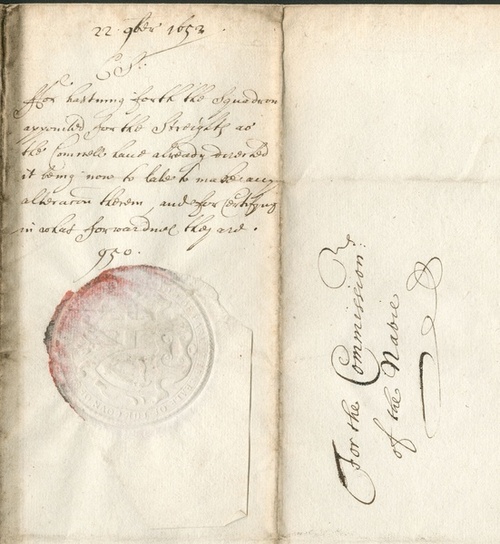 22 9ber 1652
C S:
Ffor hastning forth the Squadron
appointed for the Streights as
the Counsell have already directed
it being now to late to make any
alteracon therein, and for Certifying
in what forwardnes they are.
950.
For the Commission:rs
of the Navie